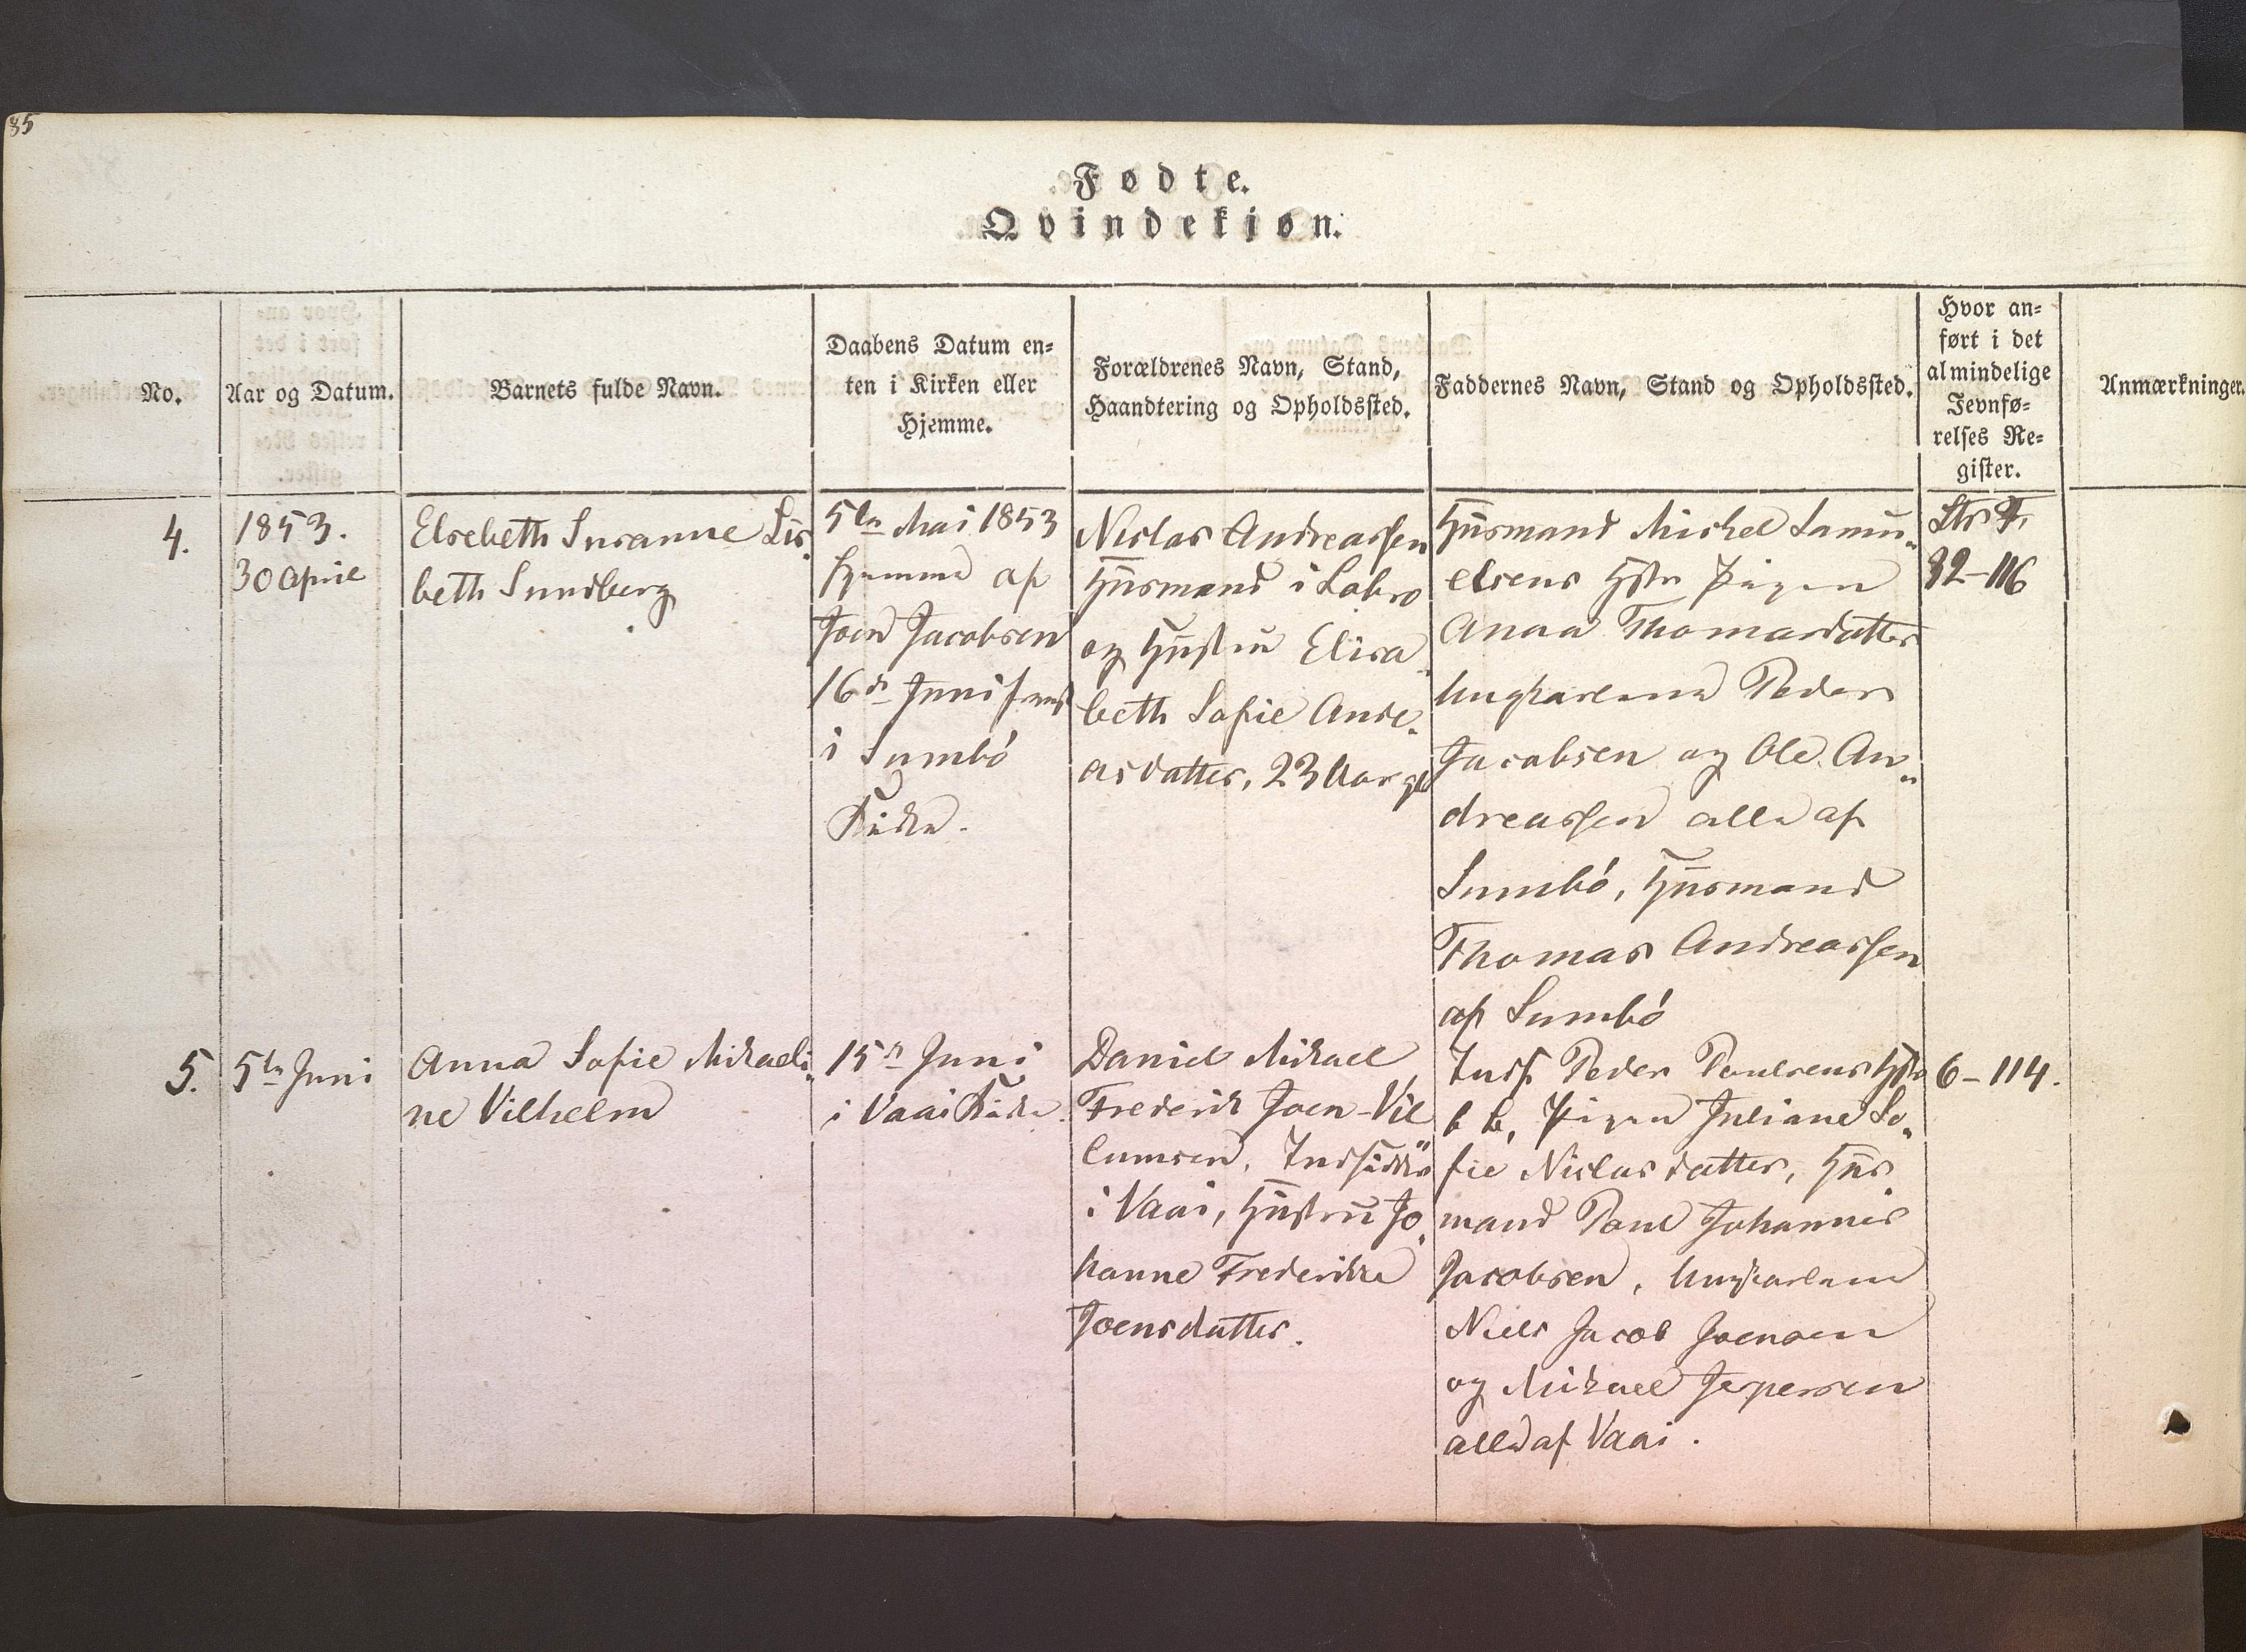 85
Fødte.
Qvindekjøn.
No.
Aar og Datum.
Barnets fulde Navn.
Daabens Datum en-
ten i Kirken eller
Hjemme.
Forældrenes Navn, Stand,
Haandtering og Opholdssted.
Faddernes Navn, Stand og Opholdssted.
Hvor an-
ført i det
almindelige
Jevnfø-
relses Re-
gister.
Anmærkninger.
4.
1853.
30 April
Elsebeth Susanne Lis-
beth Sundberg
5te Mai 1853
hjemme af
Joen Jacobsen
16de Juni
i Sumbó
Kirke.
Niclas Andreassen
Huusmand i
og Hustru Elisa-
beth Sofie Andr-
asdatter, 23 Aar gl
Huusmand Michel Samu-
elsens Hstr Pigen
Anna Thomasdatter
Ungkarlene Peder
Jacobsen og Ole An-
dreassen alle af
Sumbó, Huusmand
Thomas Andreassen
af Sumbó
82-116
5.
5te Juni
Anna Sofie Mikaeli-
ne Vilhelm
15de Juni
i Vaai Kirke
Daniel Mikael
Frederik Joen-Vil
lumsen, Indsidder
i Vaai, Hustru Jo-
hanne Frederikke
Joensdatter.
Inds. Peder Poulsens Hstr
Pigen Juliane So-
fie Niclasdatter, Huus
mand Poul Johannes
Jacobsen, Ungkarlene
Niels Jacob Joensen
og Mikael Jespersen
alle af Vaai.
6-114.